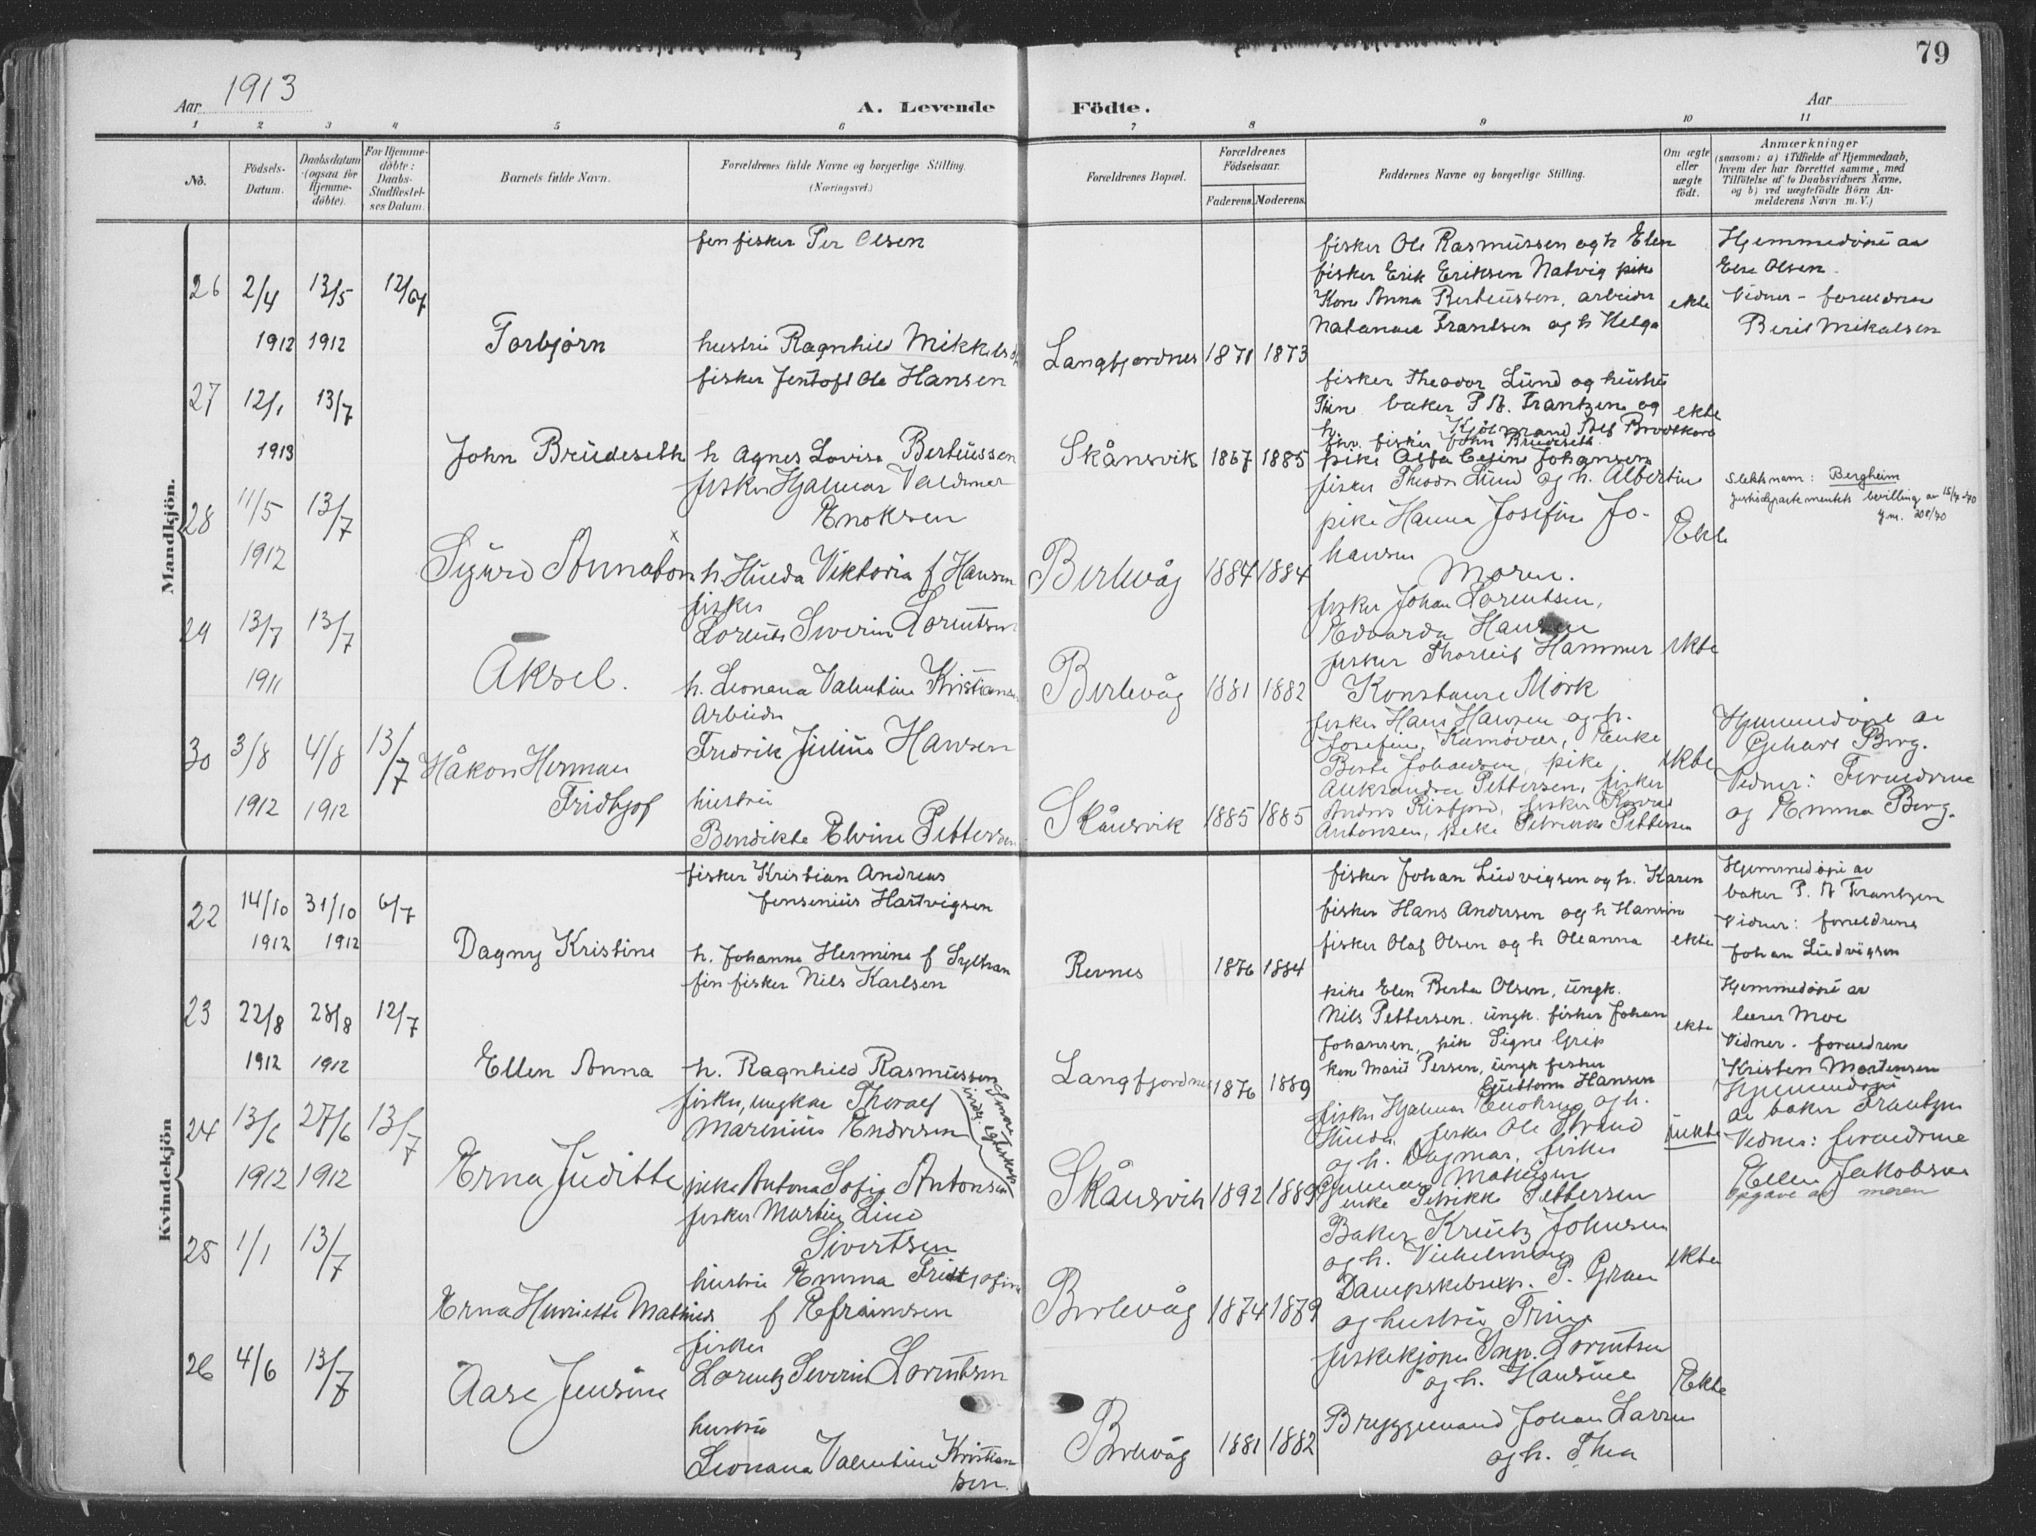 79
Aar 1913
A. Levende Födte.
Aar
1 2 3 4 5 6 7 8 9 10 11
No.
Födsels-Datum.
Daabsdatum (ogsaa för Hjemme-döbte).
For Hjemme-döbte: Daabs-Stadfæstel-ses Datum.
Barnets fulde Navn.
Forældrenes fulde Navne og borgerlige Stilling.
(Næringsvei.)
Forældrenes Bopæl.
Forældrenes Födselsaar.
Faderens. Moderens.
Faddernes Navne og borgerlige Stilling.
Om ægte eller uægte födt.
Anmærkninger
(saasom: a) i Tilfælde af Hjemmedaab,
hvem der har forrettet samme, med
Tilföielse af to Daabsvidners Navne,
og b) ved uægtefödte Börn An-
melderens Navn m. V.)
Mandkjön.
26 2/4 1912 13/5 1912 12/67
Torbjørn
fen fisker Per Olsen
hustru Ragnhild Mikkelsd
Langfjordnes 1871 1873
fisker Ole Rasmussen og h Elen
fisker Erik Eriksen Natvig pike
Kone Anna Berteussen, arbeider
Natanael Frantsen og h Helga
ekte
Hjemmedøpt av
Else Olsen.
Vidner - foreldrene
Beret Mikalsen
27 12/1 1913 13/7
John Brudeseth
fisker Jentoft Ole Hansen
h Agnes Lovise Berteussen
Skånsvik 1867 1885
fisker Theodor Lund og hustru
Trine baker P. A. Frantzen og
h.
fhv. fisker John Brudeseth
pike Alfa Johansen
ekte
28 11/5 1912 13/7
Sigurd Annaton x
fisker Hjalmar Valdemar
Enoksen
h. Hulda Viktoria f Hansen
Berlevåg 1884 1884
fisker Theodor Lund og h. Albertine
pike Hanna Josefine Jo-
hansen
Moren.
Ekte
Slektsnam: Bergheim
justisdepartementets bevilling av 15/7-20
29 13/7 1911 13/7
Aksel.
fisker
Lorents Severin Lorentsen
h. Leonana Valentine Kristianse
Berlevåg 1881 1882
fisker Johan Lorentsen,
Edvarda Hansen
fisker Thorleif Hammer
Konstanse Mörk
ekte
30 3/8 1912 4/8 1912 13/7
Håkon Herman
Fridtjof
Arbeider
Fredrik Julius Hansen
hustru
Bendikte Elvine Pettersen
Skånsvik 1885 1885
fisker Hans Hansen og h.
Josefine, Kamøvær, Enke
Berte Johansen, pike
Aleksandra Pettersen, fisker
Anders Risfjord, fisker Konrad
Antonsen, pike Petrikke Pettersen
ekte
Hjemmedøpt av
Gehart Berg.
Vidner: Foreldrene
og Emma Berg.
Kvindekjön
22 14/10 1912 31/10 1912 6/7
Dagny Kristine
fisker Kristian Andreas
Jensenius Hartvigsen
h. Johanne Hermine f Sylhan
Revnes 1876 1884
fisker Johan Ludvigsen og h. Karen
fisker Hans Andersen og h Hansine
fisker Olaf Olsen og h Oleanna
ekte
Hjemmedøpt av
baker P. A Frantzen
Vidner: foreldrene
Johan Ludvigsen
23 22/8 1912 28/8 1912 12/7
Ellen Anna
fin fisker Nils Karlsen
h. Ragnhild Rasmussen
Langfjordnes 1876 1889
pike Elen Berta Olsen, ungk.
Nils Pettersen. ungk. fisker Johan
Johansen, pike Signe Grip
kon Marit Persen, ungk fisker
Guttorm Hansen
ekte
Hjemmedøpt av
lærer Moe
Vidner - foreldrene
Kristen Mortensen
24 13/6 1912 27/6 1912 13/7
Erna Juditte
fisker, ungkar Thoralf
Marinius Endresen
pike Antona Sofie Antonsen
Skånsvik 1892 1889
fisker Hjalmar Enoksen og h.
Hulda, fisker Ole Strand
og h. Dagmar, fisker
Mathisen
enke Petrikke Pettersen
uekte
Hjemmedøpt
av baker Frantzen
Vidner: foreldrene
Ellen Jakobsen
opgave av moren
25 1/1 13/7
Erna Henriette Mathilds
fisker Martin Lind
Sivertsen
hustru Emma Fridtjofine
f Efraimsen
Berlevåg 1874 1879
Baker Kreutz Johnsen
og h. Vilhelmine
Dampskibsexp. P. Gran
og hustru Trine
ekte
26 4/6 13/7
Aase Jensine
fisker
Lorentz Severin Lorentsen
hustru
Leonana Valentine Kristian
sen.
Berlevåg 1881 1882
fiskekjøper Lorentsen
og h. Hansine
Bryggemand Johan Larsen
og h. Thea
Ekte